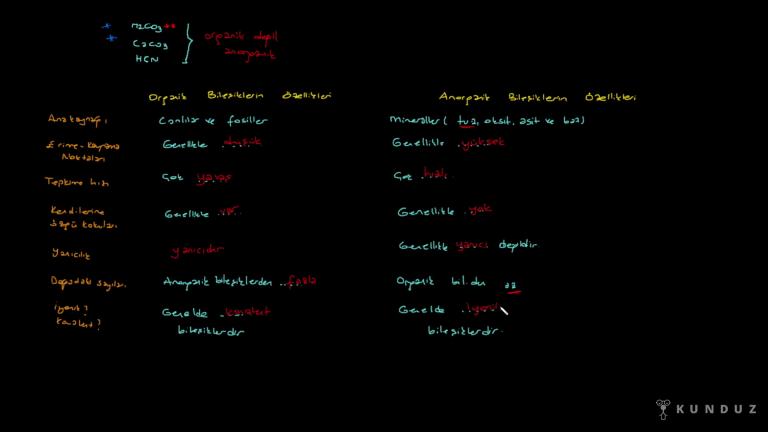 * H2CO3 **
* C2CO3
HCN
organik değil
anorganik
Organik Bileşiklerin Özellikleri
Anorganik Bileşiklerin Özellikleri
Ana kaynağı
Canlılar ve fosiller
Mineraller ( tuz, oksit, asit ve baz)
Erime-Kaynama
Noktaları
Genellikle düşük
Genellikle yüksek
Tepkime hızı
Çok yavaş
Çok hızlı
Kendilerine
özgü kokuları
Genellikle var
Genellikle yok
Yanıcılık
yanıcıdır
Genellikle yanıcı değildir.
Doğadaki sayıları
Anorganik bileşiklerden fazla
Organik bil.den az
İyonik?
Kovalent?
Genelde kovalent
bileşiklerdir
Genelde iyonik
bileşiklerdir.
KUNDUZ